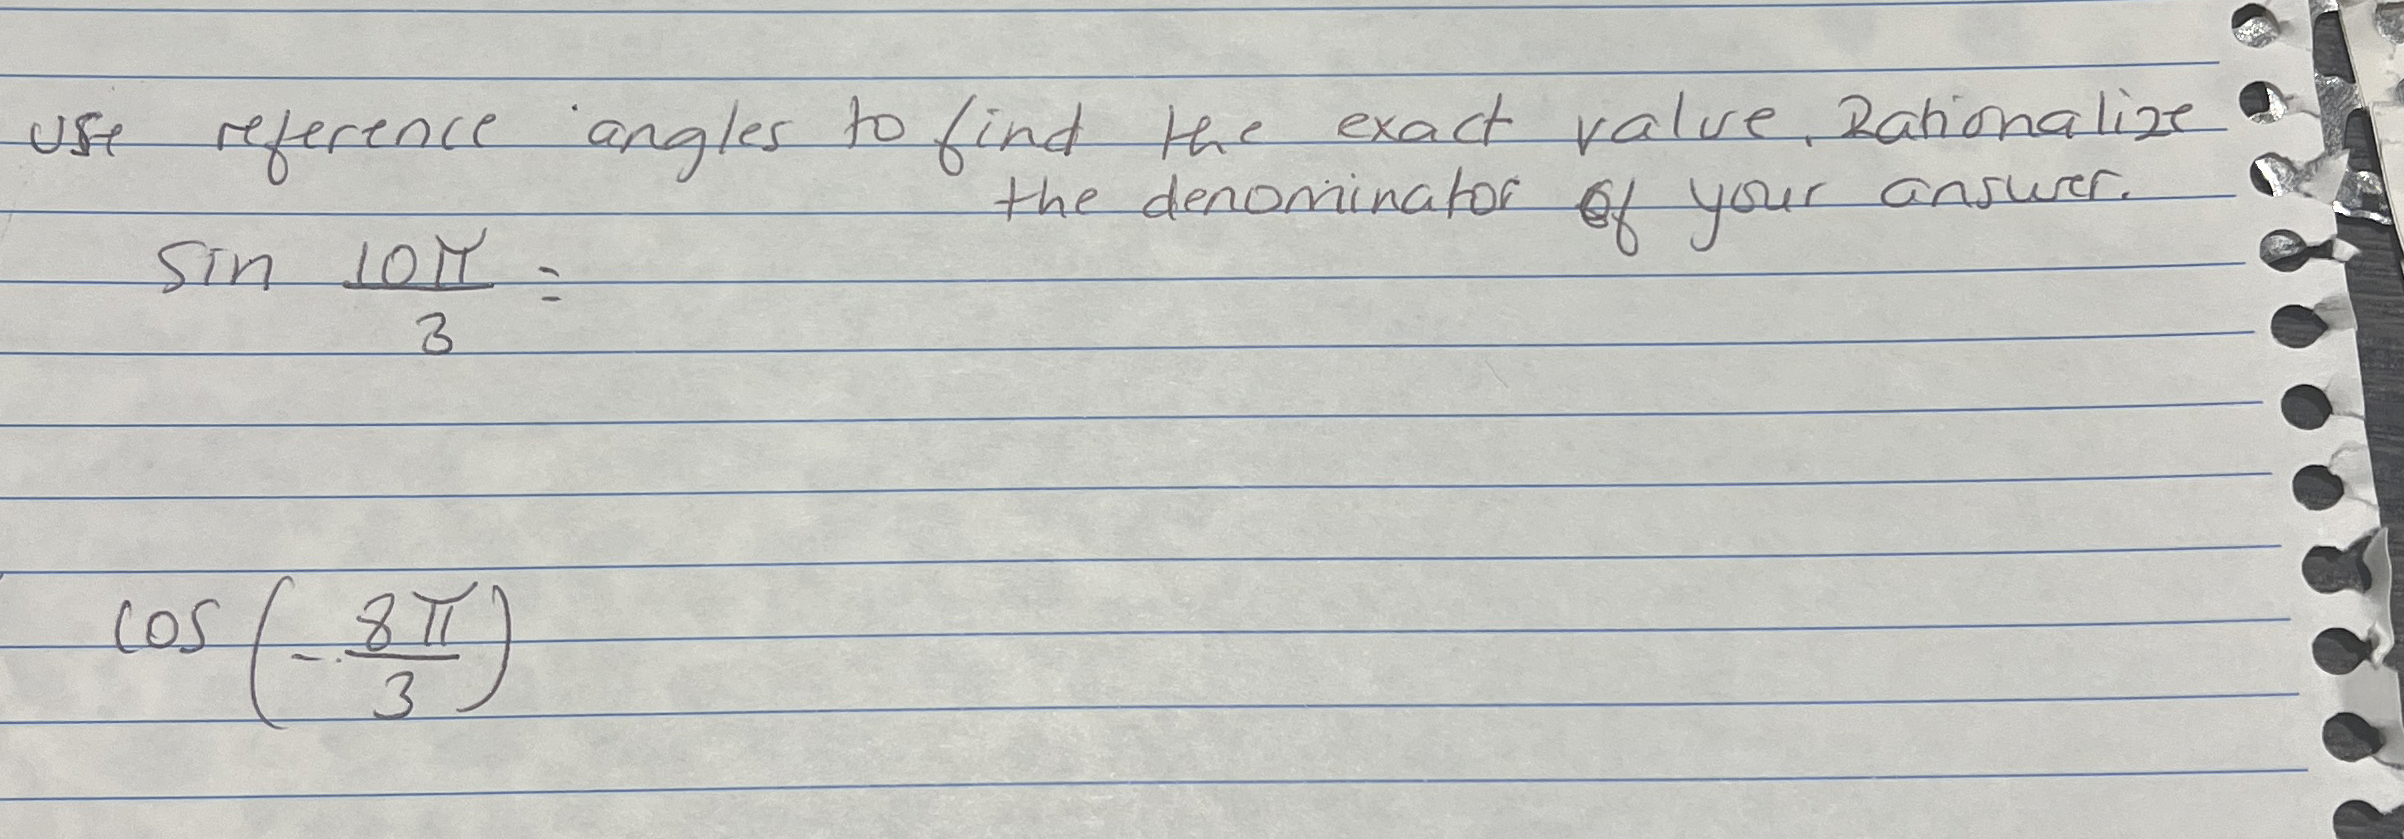 use reference angles to find the exact value. Rationalize
the denominator of your answer.
sin 10π/3 =
cos (-8π/3)